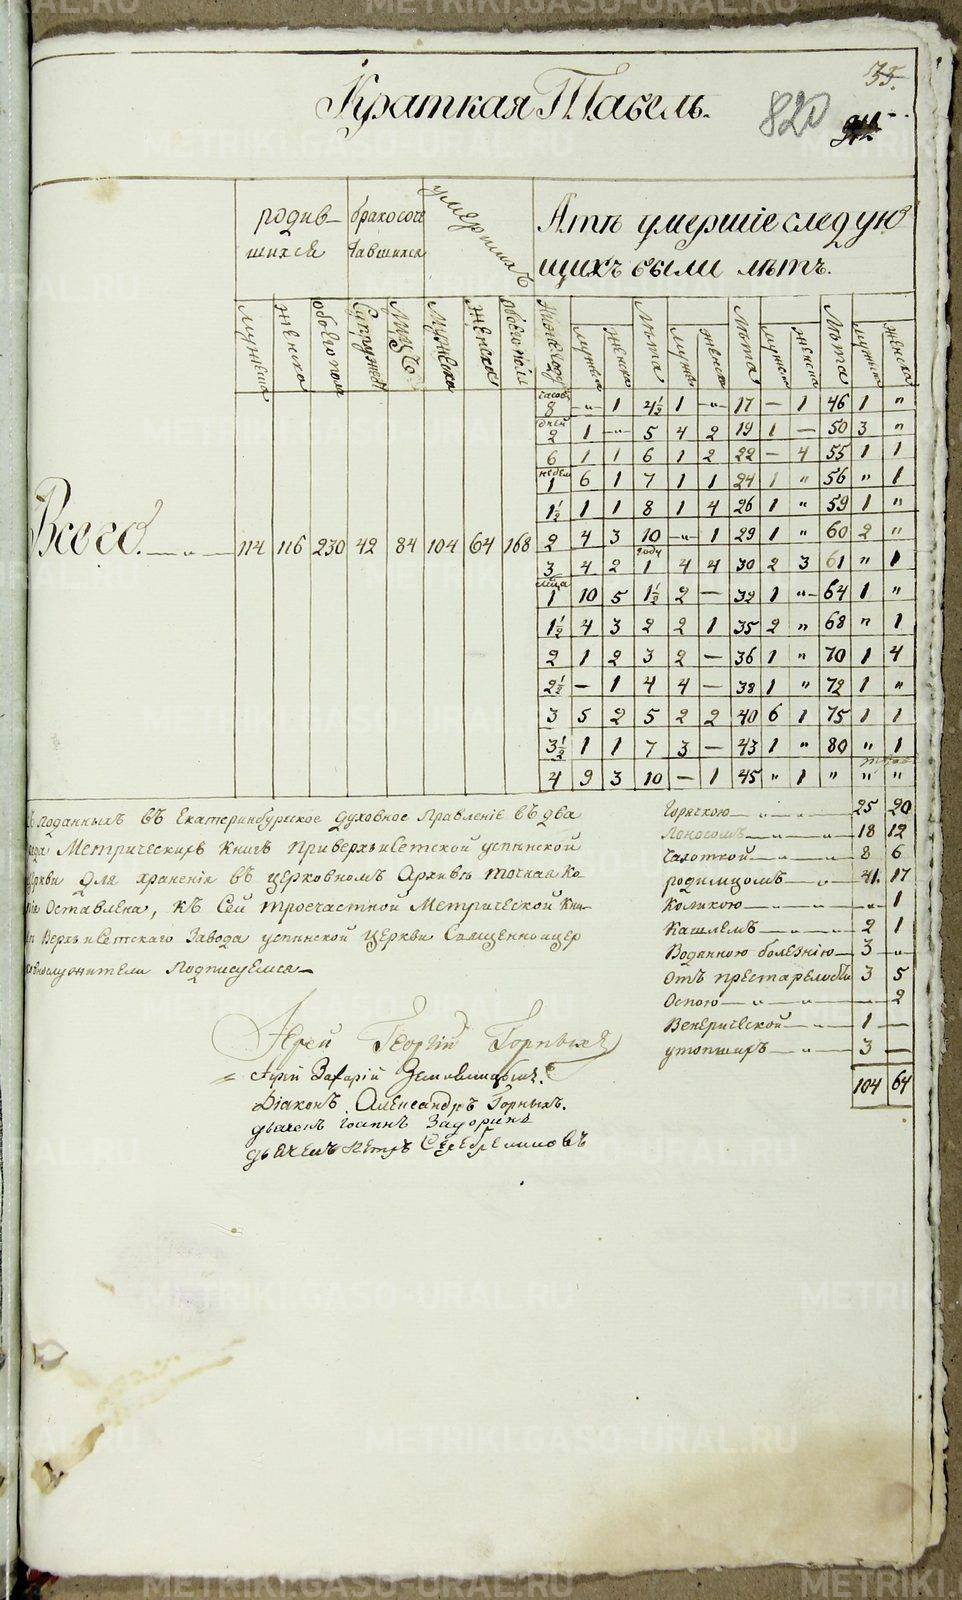 35.
Краткая Табель.
820
родив-
шихся
бракосоче
тавшихся
умершихъ
Лѣтъ умершіе следую
щихъ были лѣтъ.
мужеска женска обоего пола Супружей Лицъ мужеска женска обоего пола мужска женска Лѣта мужска женска Лѣта мужска женска Лѣта мужска женска
часовъ
8 -"- 1 4½ 1 -"- 17 — 1 46 1 "
дней
2 1 -"- 5 4 2 19 1 — 50 3 "
6 1 1 6 1 2 22 — 4 55 1 1
недел
1 6 1 7 1 1 24 1 " 56 " 1
1½ 1 1 8 1 4 26 1 " 59 1 "
Всего. —"— 114 116 230 42 84 104 64 168 2 4 3 10 -"- 1 29 1 " 60 2 "
году
3 4 2 1 4 4 30 2 3 61 " 1
мца
1 10 5 1½ 2 — 32 1 "- 64 1 "
1½ 4 3 2 2 1 35 2 " 68 " 1
2 1 2 3 2 — 36 1 " 70 1 4
2½ — 1 4 4 — 38 1 " 72 1 "
3 5 2 5 2 2 40 6 1 75 1 1
3½ 1 1 7 3 — 43 1 " 80 " 1
4 9 3 10 — 1 45 " 1 " " "
поданныхъ въ Екатеринбургское Духовное Правленіе въ два
Метрическихъ Книгъ при верхъ исетской успенской
церкви для храненія въ церковномъ Архивѣ точная ко
пія Оставлена, къ Сей троечастной Метрической Кни-
Верхъ исетскаго Завода успенской церкви Священно и цер
ковнослужители подписуемся.—
Горячкою —"—"— 25 20
Поносомъ —"—"— 18 12
Чахоткой —"—"— 8 6
родимцомъ —"— 41. 17
Коликою —"—"— " 1
Кашлемъ —"—"— 2 1
Водяною болезнію — 3 -"-
Отъ престарелости 3 5
Оспою —"—"— — 2
Венерической —"— 1 —
утопшихъ —"— 3 —
104 64
Іерей Георгій Горныхъ
Іерей Захарій
Діаконъ Александръ Горныхъ.
дьячекъ Іоаннъ Задоринъ
дьячекъ Петръ Серебренниковъ
METRIKI.GASO-URAL.RU